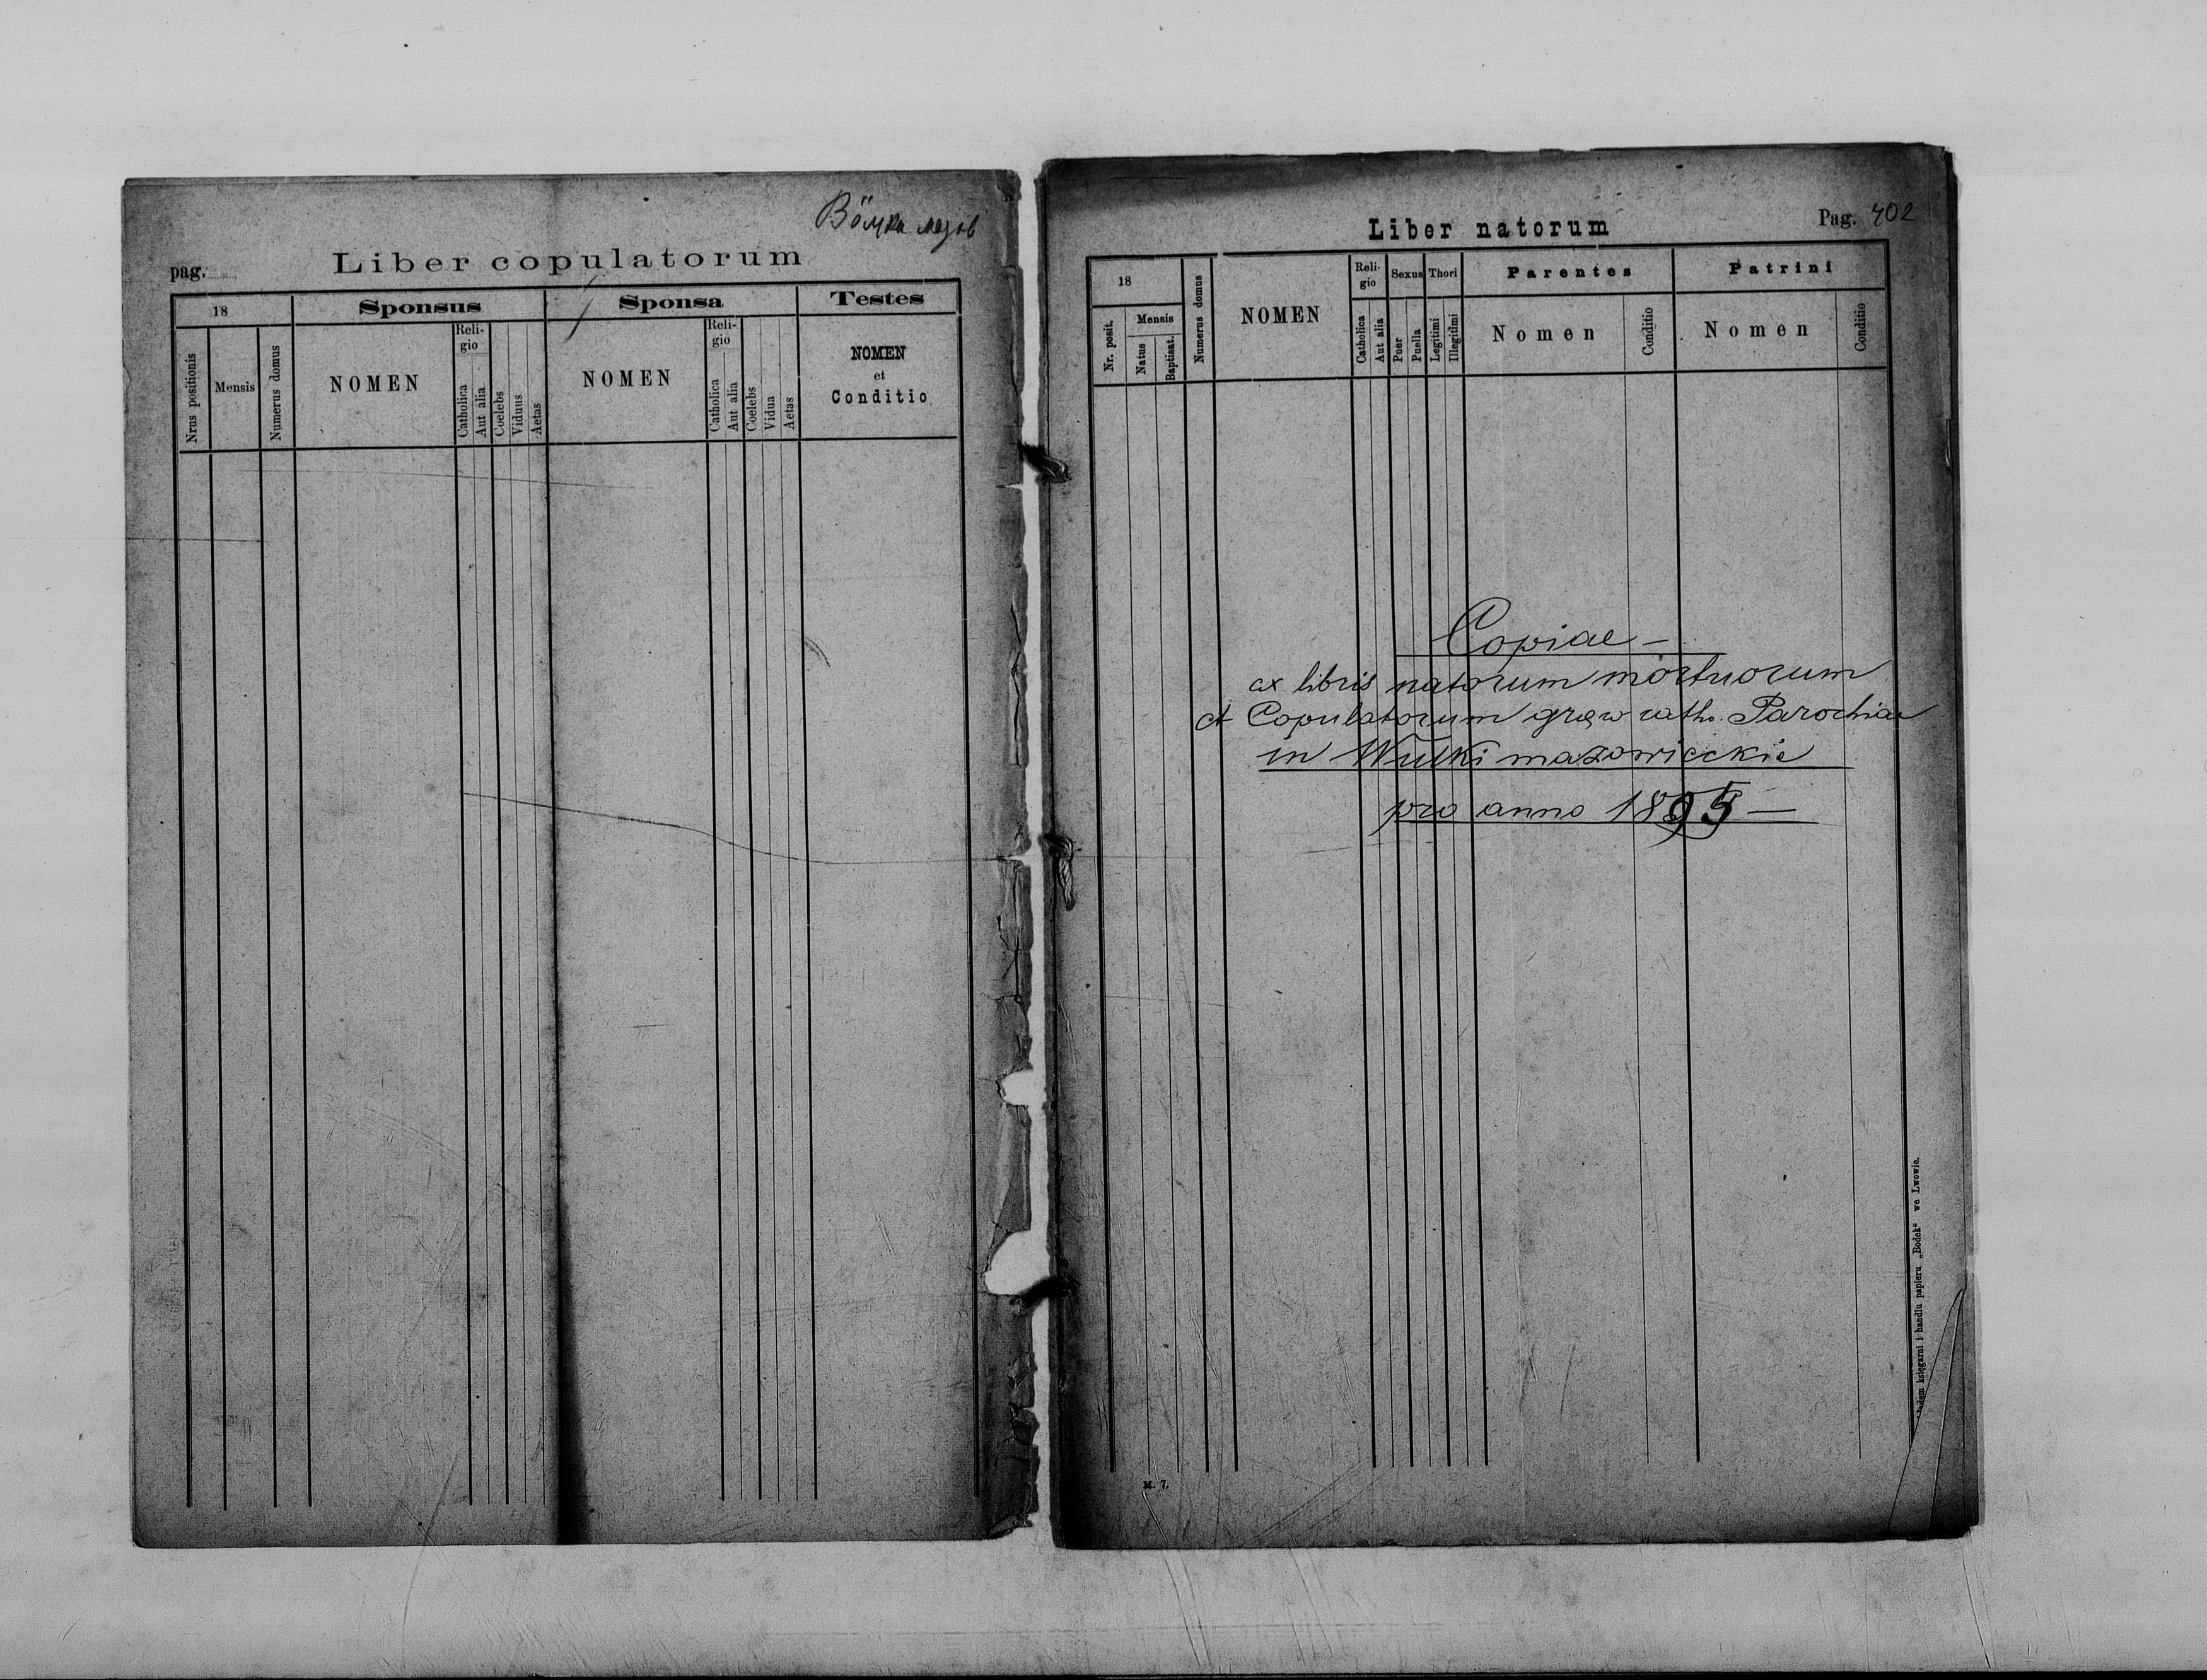 Вöлка мазов
Liber copulatorum
pag.
18
Sponsus
Sponsa
Testes
Nrus positionis
Mensis
Numerus domus
NOMEN
Reli-
gio
Catholica
Aut alia
Coelebs
Viduus
Aetas
NOMEN
Reli-
gio
Catholica
Aut alia
Coelebs
Vidua
Aetas
NOMEN
et
Conditio
Liber natorum
Pag. 402
18
Nr. posit.
Mensis
Natus
Baptisat.
Numerus domus
NOMEN
Reli-
gio
Catholica
Aut alia
Sexus
Puer
Puella
Thori
Legitimi
Illegitimi
Parentes
Nomen
Conditio
Patrini
Nomen
Conditio
Copiae —
ex libris natorum mortuorum
et Copulatorum graeco cath. Parochiae
in Wulki mazowieckie
pro anno 1895 —
księgarni i handlu papieru „Bodek“ we Lwowie.
M. 7.